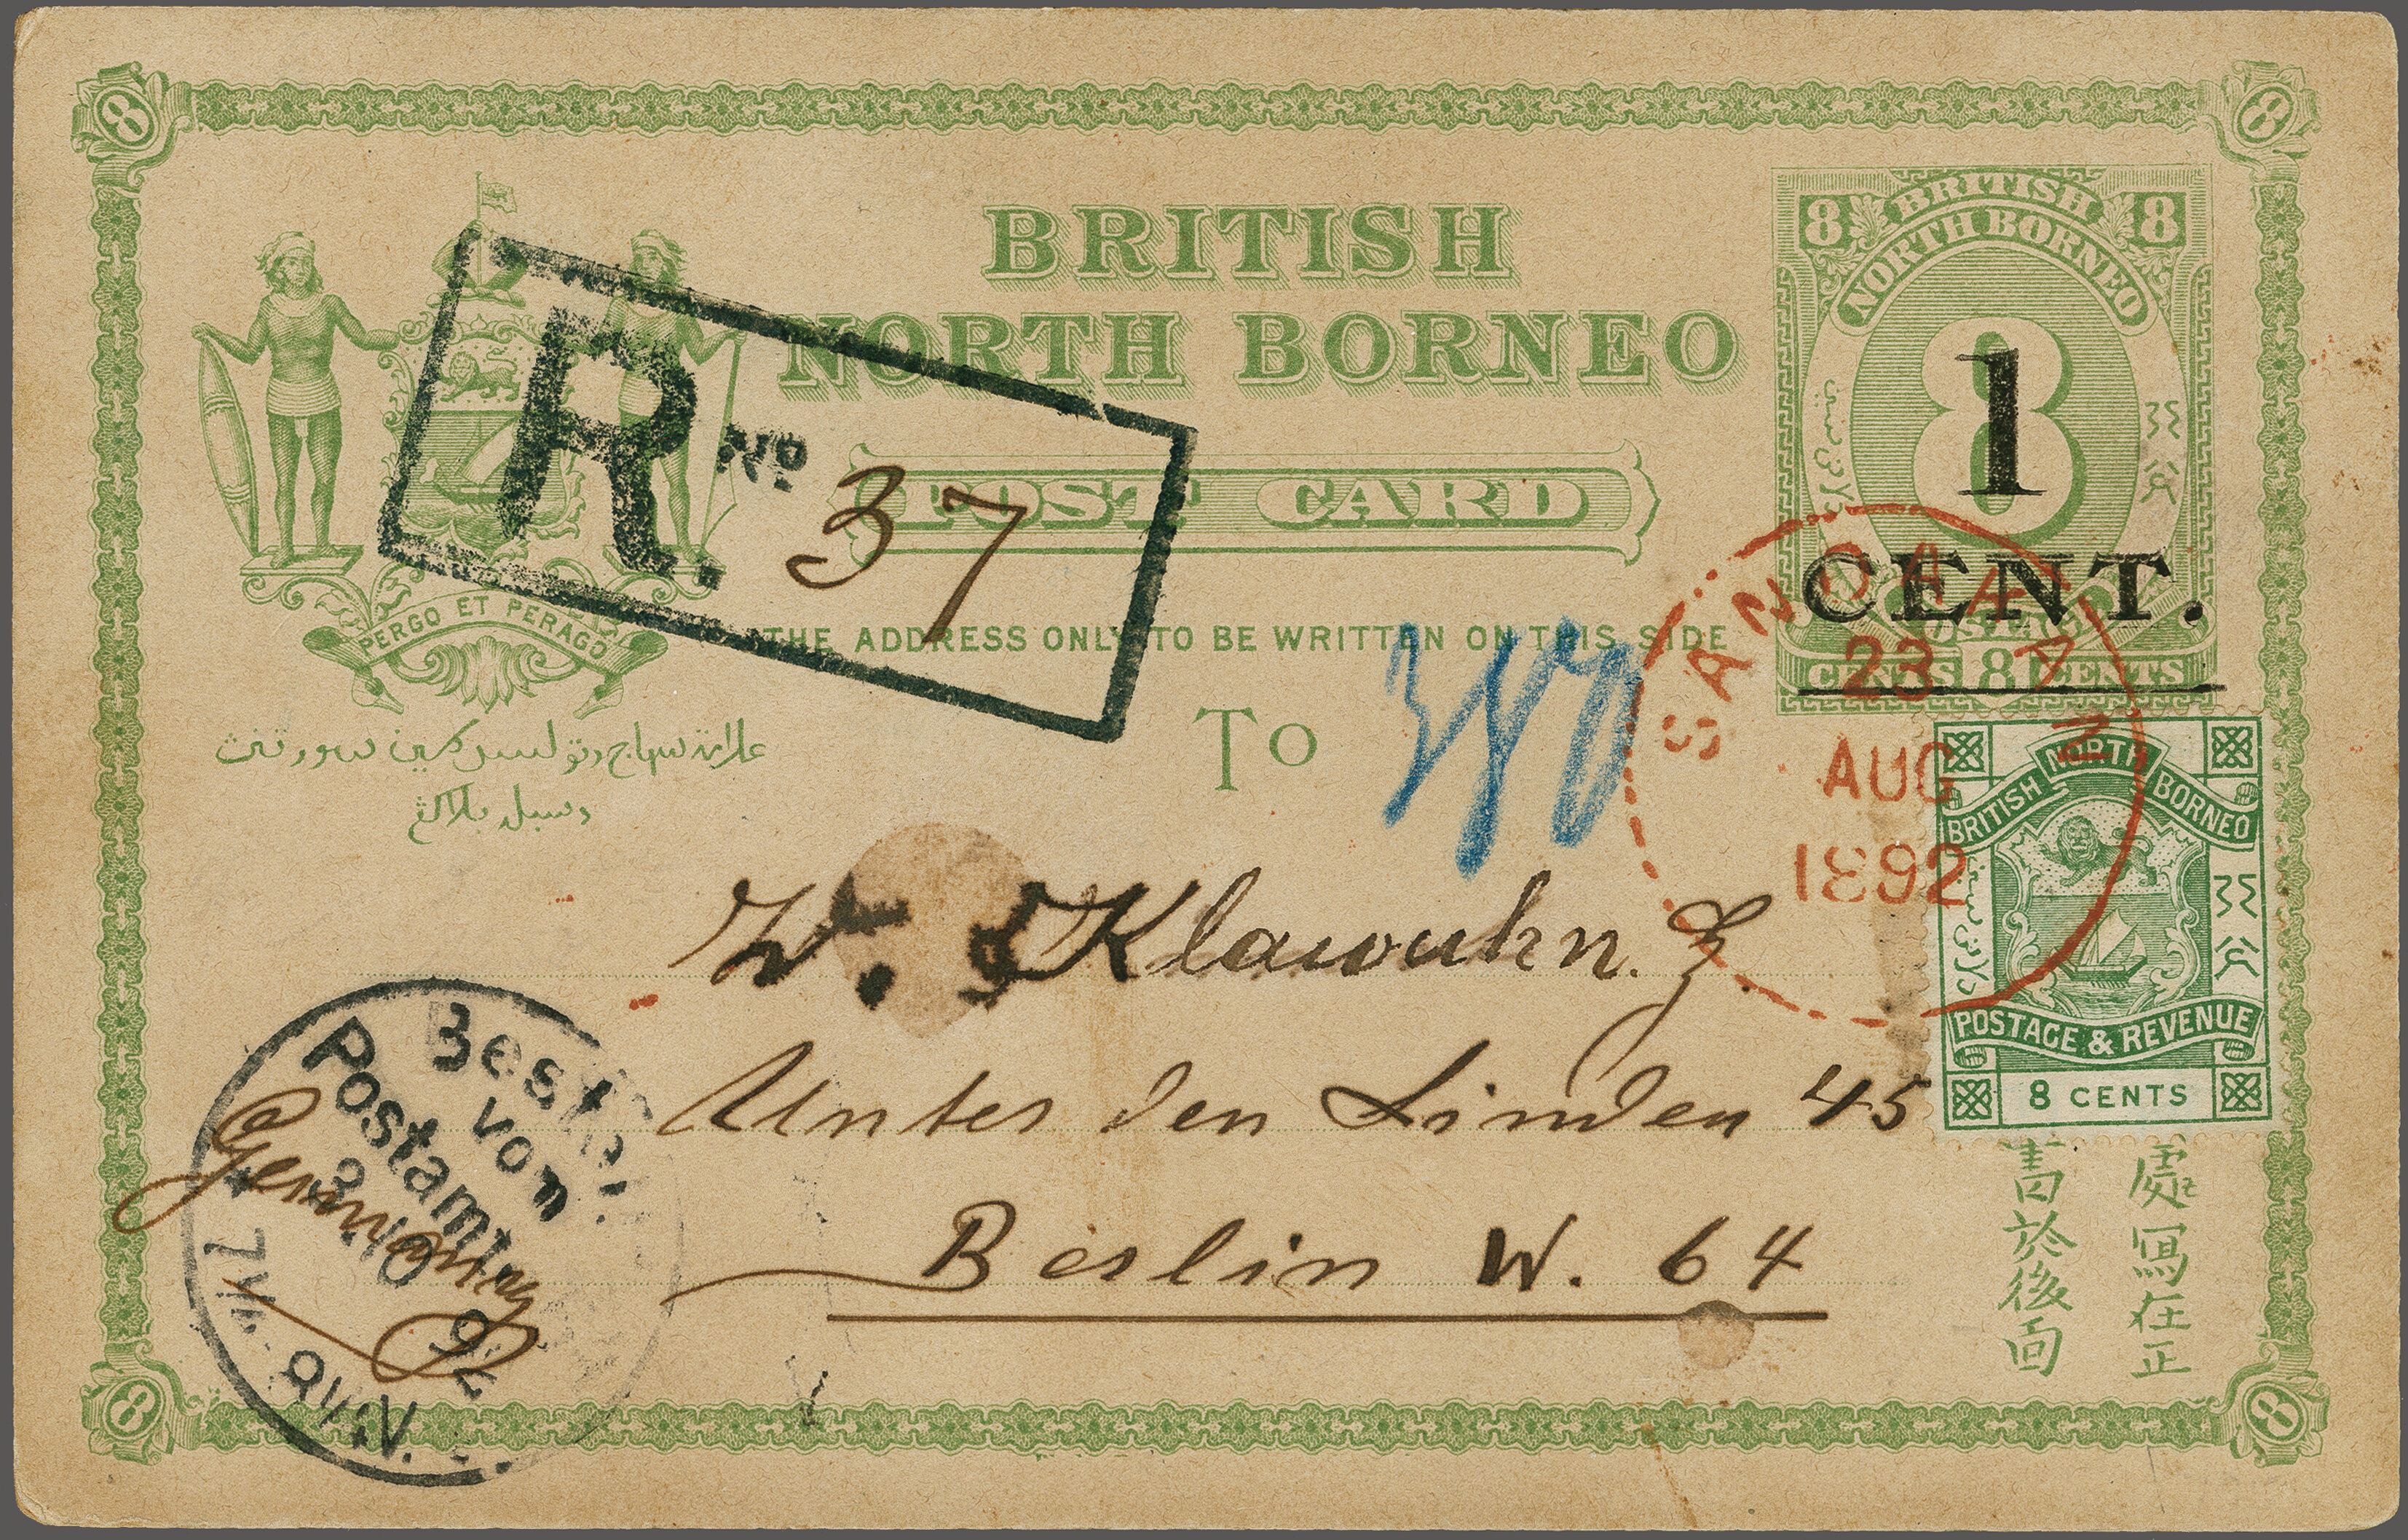 8
8
BRITISH
NORTH BORNEO
POST CARD
THE ADDRESS ONLY TO BE WRITTEN ON THIS SIDE
To
PERGO ET PERAGO
R. No 37
8 BRITISH 8
NORTH BORNEO
8
1
CENT.
CENTS 8 CENTS
SANDAKAN
23
AUG
1892
BRITISH NORTH BORNEO
POSTAGE & REVENUE
8 CENTS
W. Klawuhn.
Unter den Linden 45
Berlin W. 64
Germany
vom
Postamte
8 10 92
處寫在正
書於後面
8
8